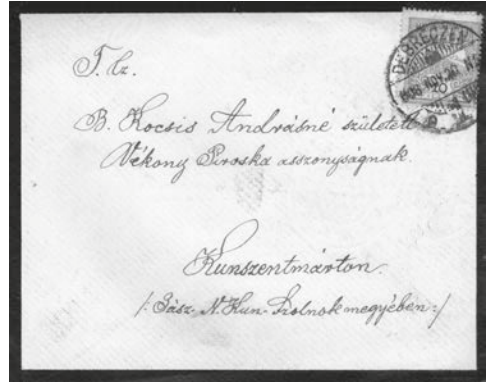 T. Cz.
B. Kocsis Andrásné született
Vékony Piroska asszonyságnak.
Kunszentmárton.
/: Jász-N.Kun-Szolnok megyében:/
DEBRECZEN